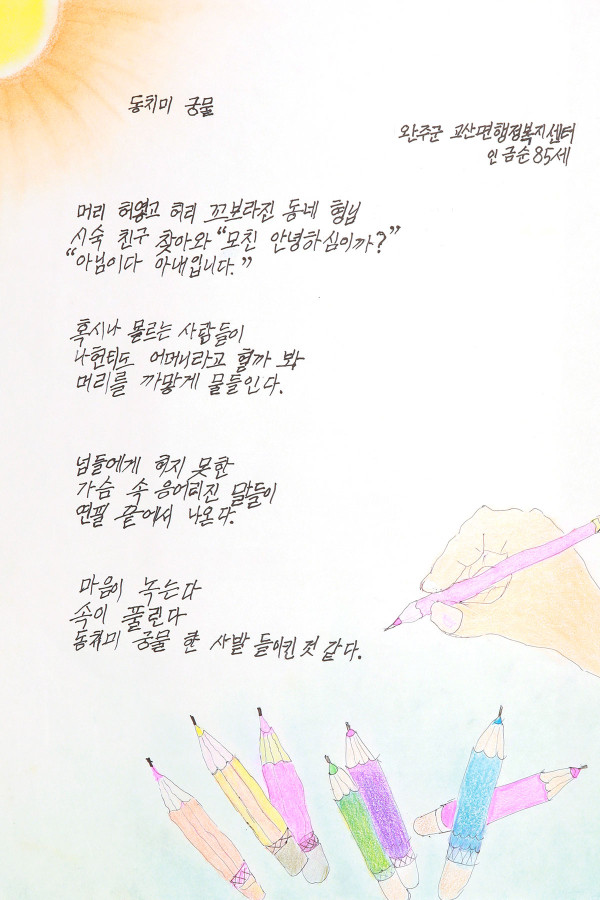 동치미 궁물
완주군 고산면행정복지센터
인금순 85세
머리 허영고 허리 꼬브라진 동네 형님
시숙 친구 찾아와 “모친 안녕하심이까?”
“아님이다 아내입니다.”
혹시나 몰르는 사람들이
나헌티도 어머니라고 헐까 봐
머리를 까맣게 물들인다.
넘들에게 허지 못한
가슴 속 응어리진 말들이
연필 끝에서 나온다.
마음이 녹는다
속이 풀린다
동치미 궁물 한 사발 들이킨 것 같다.